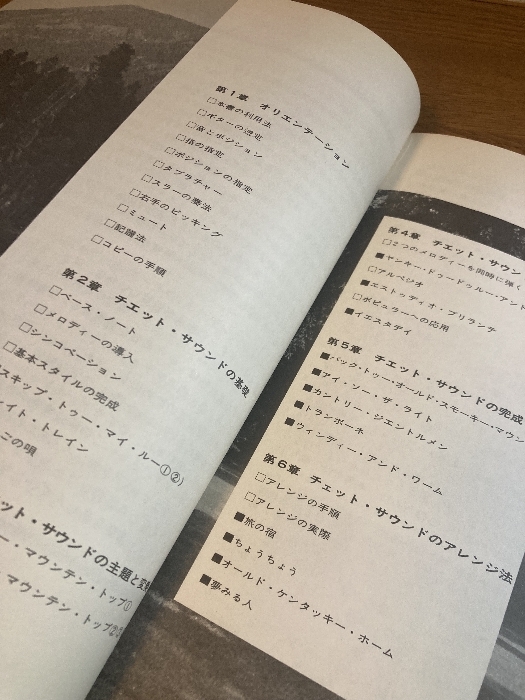 第1章 オリエンテーション
□本書の利用法
□ギターの選定
□弦とポジション
□指の指定
□ポジションの指定
□タブラチャー
□スラーの奏法
□右手のピッキング
□ミュート
□記譜法
□コピーの手順
第2章 チェット・サウンドの基礎
□ベース・ノート
□メロディーの導入
□シンコペーション
□基本スタイルの完成
スキップ・トゥー・マイ・ルー①②)
イト・トレイン
ごの唄
ット・サウンドの主題と
ー・マウンテン・トップ①
マウンテン・トップ②
第4章 チェット・サウン
□2つのメロディーを同時に弾く
■ヤンキー・ドゥードゥル・アンド
□アルペジオ
■エストゥディオ・ブリランテ
□ポピュラーへの応用
■イエスタデイ
第5章 チェット・サウンドの完成
■バック・トゥー・オールド・スモーキー・マウン
■アイ・ソー・ザ・ライト
■カントリー・ジェントルメン
■トランボーネ
■ウィンディー・アンド・ワーム
第6章 チェット・サウンドのアレンジ法
□アレンジの手順
□アレンジの実際
■旅の宿
■ちょうちょう
■オールド・ケンタッキー・ホーム
■夢みる人